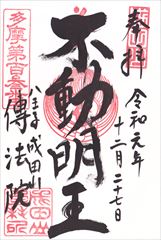 奉拝
令和元年
十二月二十七日
不動明王
八王子成田山
傳法院
多摩第百番